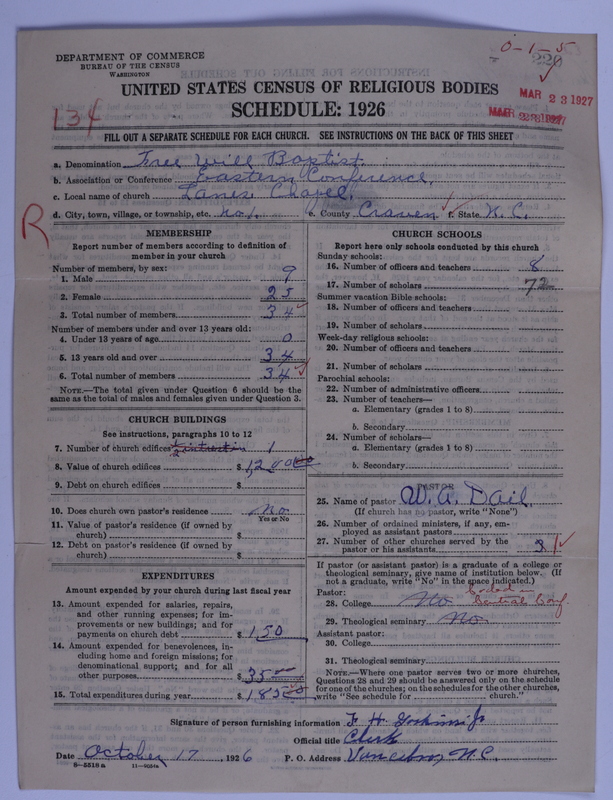 DEPARTMENT OF COMMERCE
BUREAU OF THE CENSUS
WASHINGTON
0-1-5
220
UNITED STATES CENSUS OF RELIGIOUS BODIES
SCHEDULE: 1926
MAR 23 1927
MAR 23 1927
134
FILL OUT A SEPARATE SCHEDULE FOR EACH CHURCH. SEE INSTRUCTIONS ON THE BACK OF THIS SHEET
a. Denomination Free Will Baptist
b. Association or Conference Eastern Conference
c. Local name of church Lanes Chapel
d. City, town, village, or township, etc. no 1. e. County Craven f. State N.C.
R
MEMBERSHIP
Report number of members according to definition of member in your church
Number of members, by sex:
1. Male 9
2. Female 25
3. Total number of members 34
Number of members under and over 13 years old:
4. Under 13 years of age 0
5. 13 years old and over 34
6. Total number of members 34
NOTE.—The total given under Question 6 should be the same as the total of males and females given under Question 3.
CHURCH BUILDINGS
See instructions, paragraphs 10 to 12
7. Number of church edifices 1
8. Value of church edifices $ 1,200 00
9. Debt on church edifices $
10. Does church own pastor's residence No
Yes or No
11. Value of pastor's residence (if owned by church) $
12. Debt on pastor's residence (if owned by church) $
EXPENDITURES
Amount expended by your church during last fiscal year
13. Amount expended for salaries, repairs, and other running expenses; for improvements or new buildings; and for payments on church debt $ 150
14. Amount expended for benevolences, including home and foreign missions; for denominational support; and for all other purposes $ 35
15. Total expenditures during year $ 185
CHURCH SCHOOLS
Report here only schools conducted by this church
Sunday schools:
16. Number of officers and teachers 8
17. Number of scholars 72
Summer vacation Bible schools:
18. Number of officers and teachers
19. Number of scholars
Week-day religious schools:
20. Number of officers and teachers
21. Number of scholars
Parochial schools:
22. Number of administrative officers
23. Number of teachers—
a. Elementary (grades 1 to 8)
b. Secondary
24. Number of scholars—
a. Elementary (grades 1 to 8)
b. Secondary
PASTOR
25. Name of pastor W. A. Dail
(If church has no pastor, write "None")
26. Number of ordained ministers, if any, employed as assistant pastors
27. Number of other churches served by the pastor or his assistants 3
If pastor (or assistant pastor) is a graduate of a college or theological seminary, give name of institution below. (If not a graduate, write "No" in the space indicated.)
Pastor:
28. College No
Coded in Central Conf.
29. Theological seminary No
Assistant pastor:
30. College
31. Theological seminary
NOTE.—Where one pastor serves two or more churches, Questions 28 and 29 should be answered only on the schedule for one of the churches; on the schedules for the other churches, write "See schedule for church."
Signature of person furnishing information
Official title Clerk
Date October 17, 1926 P. O. Address Vanceboro, N.C.
8-5518a